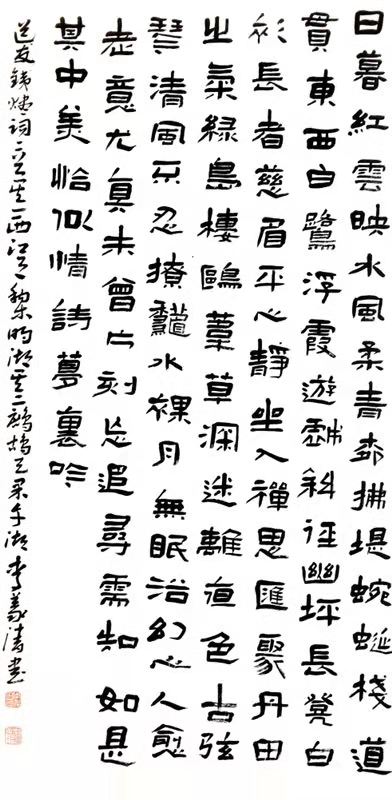 日暮紅雲映水風柔青柳拂堤蜿蜒棧道
貫東西白鷺浮霞遊戲斜徑幽坪長凳白
衫長者慈眉平心靜坐入禪思匯聚丹田
之氣綠島棲鷗葦草深迷離夜色古弦
琴清風不忍撩水裸月無眠浴幻心人愈
老意尤真未曾片刻忘追尋需知如是
其中美恰似情詩夢裏吟
道友詞二首其一西江月黎明湖其二鷓鴣天湖李義書